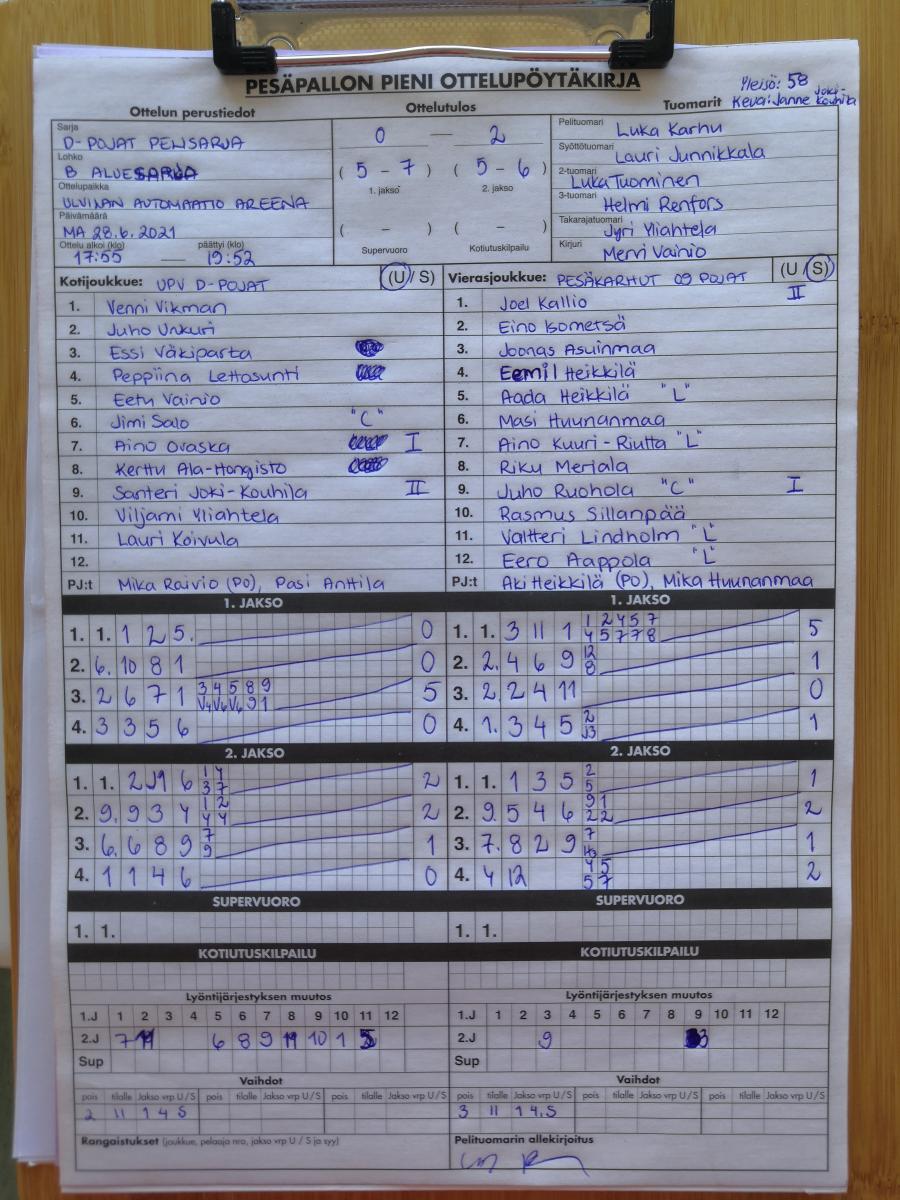 PESÄPALLON PIENI OTTELUPÖYTÄKIRJA
Yleisö: 58
Keva: Janne Joki-Kouhila
Ottelun perustiedot
Sarja
D-POJAT PENSARJA
Lohko
B ALUESARJA
Ottelupaikka
ULVILAN AUTOMAATIO AREENA
Päivämäärä
MA 28.6.2021
Ottelu alkoi (klo) päättyi (klo)
17:55 — 19:52
Ottelutulos
0 — 2
( 5 - 7 ) ( 5 - 6 )
1. jakso 2. jakso
( - ) ( - )
Supervuoro Kotiutuskilpailu
Tuomarit
Pelituomari Luka Karhu
Syöttötuomari Lauri Junnikkala
2-tuomari Luka Tuominen
3-tuomari Helmi Renfors
Takarajatuomari Jyri Yliahtela
Kirjuri Mervi Vainio
Kotijoukkue: UPV D-POJAT (U / S)
1. Venni Vikman
2. Juho Unkuri
3. Essi Väkiparta
4. Peppiina Lettosunti
5. Eetu Vainio
6. Jimi Salo "C"
7. Aino Oraska I
8. Kerttu Ala-Hongisto
9. Santeri Joki-Kouhila II
10. Viljami Yliahtela
11. Lauri Koivula
12.
PJ:t Mika Raivio (PO), Pasi Anttila
Vierasjoukkue: PESÄKARHUT 09 POJAT (U / S)
1. Joel Kallio II
2. Eino Isometsä
3. Joonas Asuinmaa
4. Eemil Heikkilä
5. Aada Heikkilä "L"
6. Masi Huunanmaa
7. Aino Kuuri-Riutta "L"
8. Riku Merjala
9. Juho Ruohola "C" I
10. Rasmus Sillanpää
11. Valtteri Lindholm "L"
12. Eero Aappola "L"
PJ:t Aki Heikkilä (PO), Mika Huunanmaa
1. JAKSO
1. 1. 1 2 5. 0
2. 6. 10 8 1 0
3. 2 6 7 1 3 4 5 8 9 5
V4 V6 V6 9 1
4. 3 3 5 6 0
1. JAKSO
1. 1. 3 11 1 1 2 4 5 7 5
4 5 7 7 8
2. 2. 4 6 9 12 1
8
3. 2. 2 4 11 0
4. 1. 3 4 5 2 1
J3
2. JAKSO
1. 1. 2 J1 6 1 4 2
3 7
2. 9. 9 3 4 1 2 2
4 4
3. 6. 6 8 9 7 1
9
4. 1 1 4 6 0
2. JAKSO
1. 1. 1 3 5 2 1
5
2. 9. 5 4 6 9 1 2
2 2
3. 7. 8 2 9 7 1
4. 4 12 4 5 2
5 7
SUPERVUORO
1. 1.
SUPERVUORO
1. 1.
KOTIUTUSKILPAILU
KOTIUTUSKILPAILU
Lyöntijärjestyksen muutos
1.J 1 2 3 4 5 6 7 8 9 10 11 12
2.J 7 6 8 9 11 10 1
Sup
Lyöntijärjestyksen muutos
1.J 1 2 3 4 5 6 7 8 9 10 11 12
2.J 9 3
Sup
Vaihdot
pois tilalle Jakso vrp U / S pois tilalle Jakso vrp U / S pois tilalle Jakso vrp U / S
2 11 1 4 S
Vaihdot
pois tilalle Jakso vrp U / S pois tilalle Jakso vrp U / S pois tilalle Jakso vrp U / S
3 11 1 4. S
Rangaistukset (joukkue, pelaaja nro, jakso vrp U / S ja syy)
Pelituomarin allekirjoitus